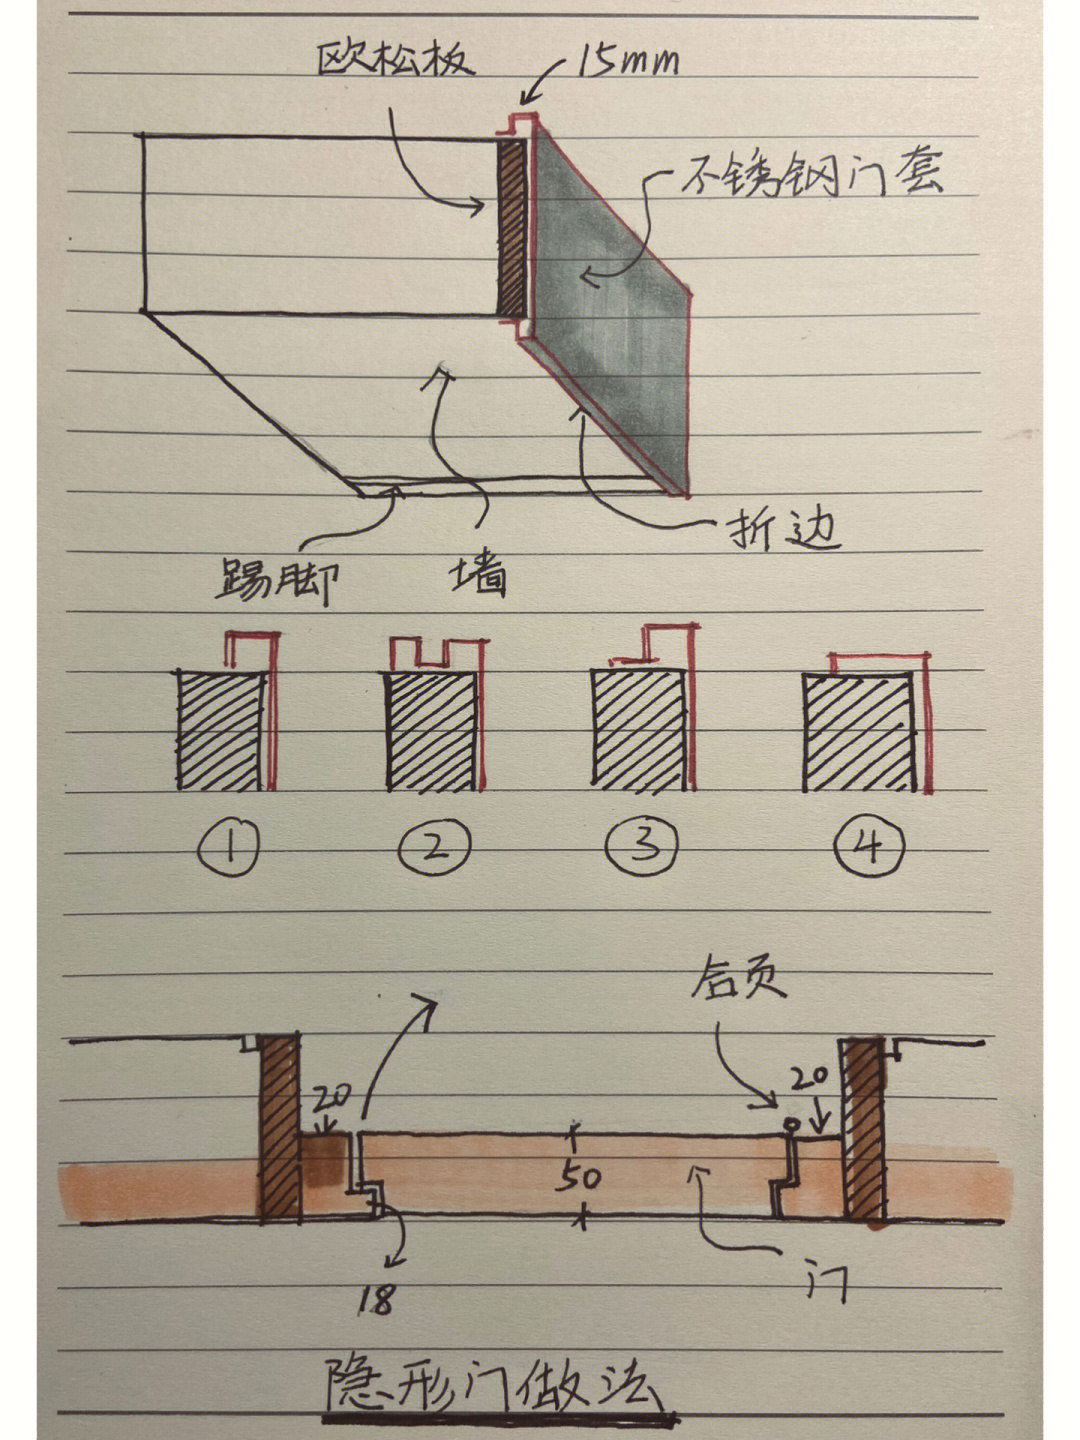 欧松板
15mm
不锈钢门套
折边
踢脚
墙
① ② ③ ④
合页
20
20
50
18
门
隐形门做法